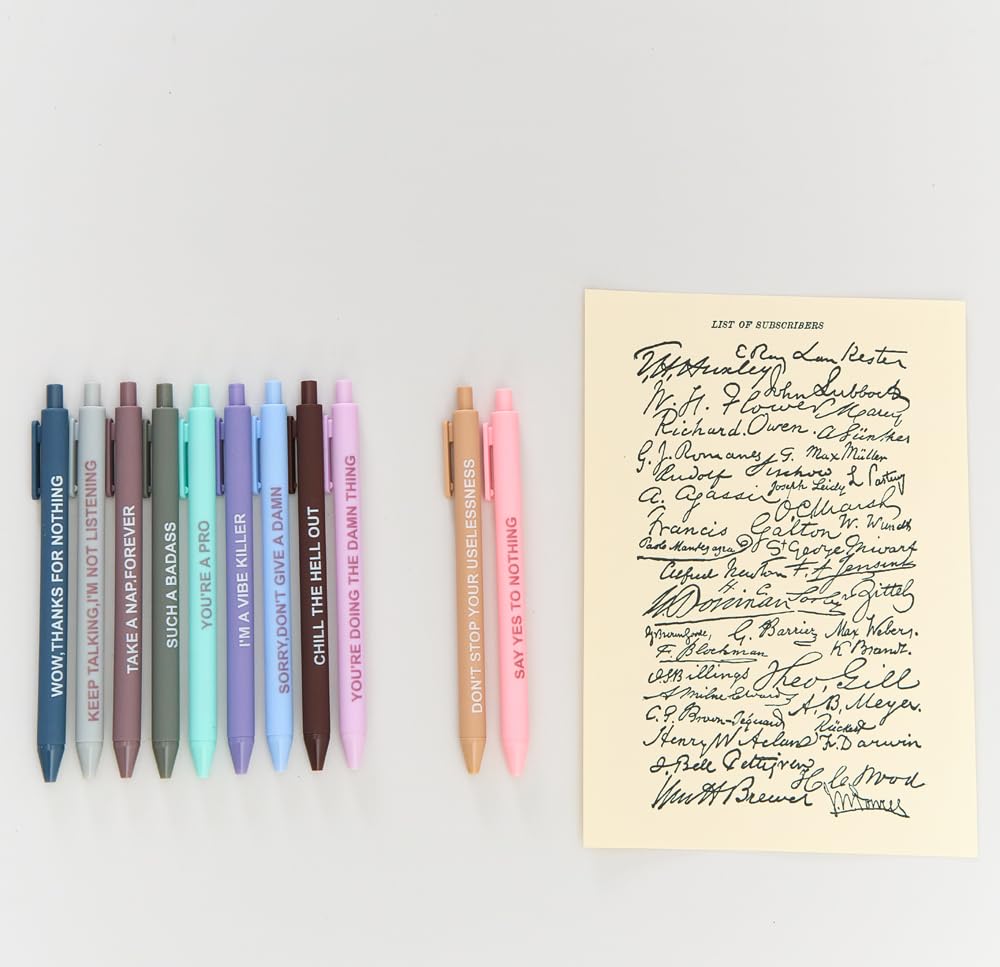 WOW,THANKS FOR NOTHING
KEEP TALKING,I'M NOT LISTENING
TAKE A NAP.FOREVER
SUCH A BADASS
YOU'RE A PRO
I'M A VIBE KILLER
SORRY,DON'T GIVE A DAMN
CHILL THE HELL OUT
YOU'RE DOING THE DAMN THING
DON'T STOP YOUR USELESSNESS
SAY YES TO NOTHING
LIST OF SUBSCRIBERS
E Ray Lankester
T. H. Huxley
John Lubbock
W. H. Flower
Richard. Owen. A Günther
G. J. Romanes F. Max Müller
Rudolf Virchow Joseph Leidy
A. Agassiz O C Marsh
Francis Galton W. Wundt
Paolo Mantegazza St George Mivart
Alfred Newton
Zittel
G. Barrier Max Weber.
F. Blochman K Brandt.
J. S. Billings Theo. Gill
A Milne Edwards A. B. Meyer.
C. E. Brown-Séquard Rückert
Henry W Acland F. Darwin
J. Bell Pettigrew
H C Wood
Wm H Brewer